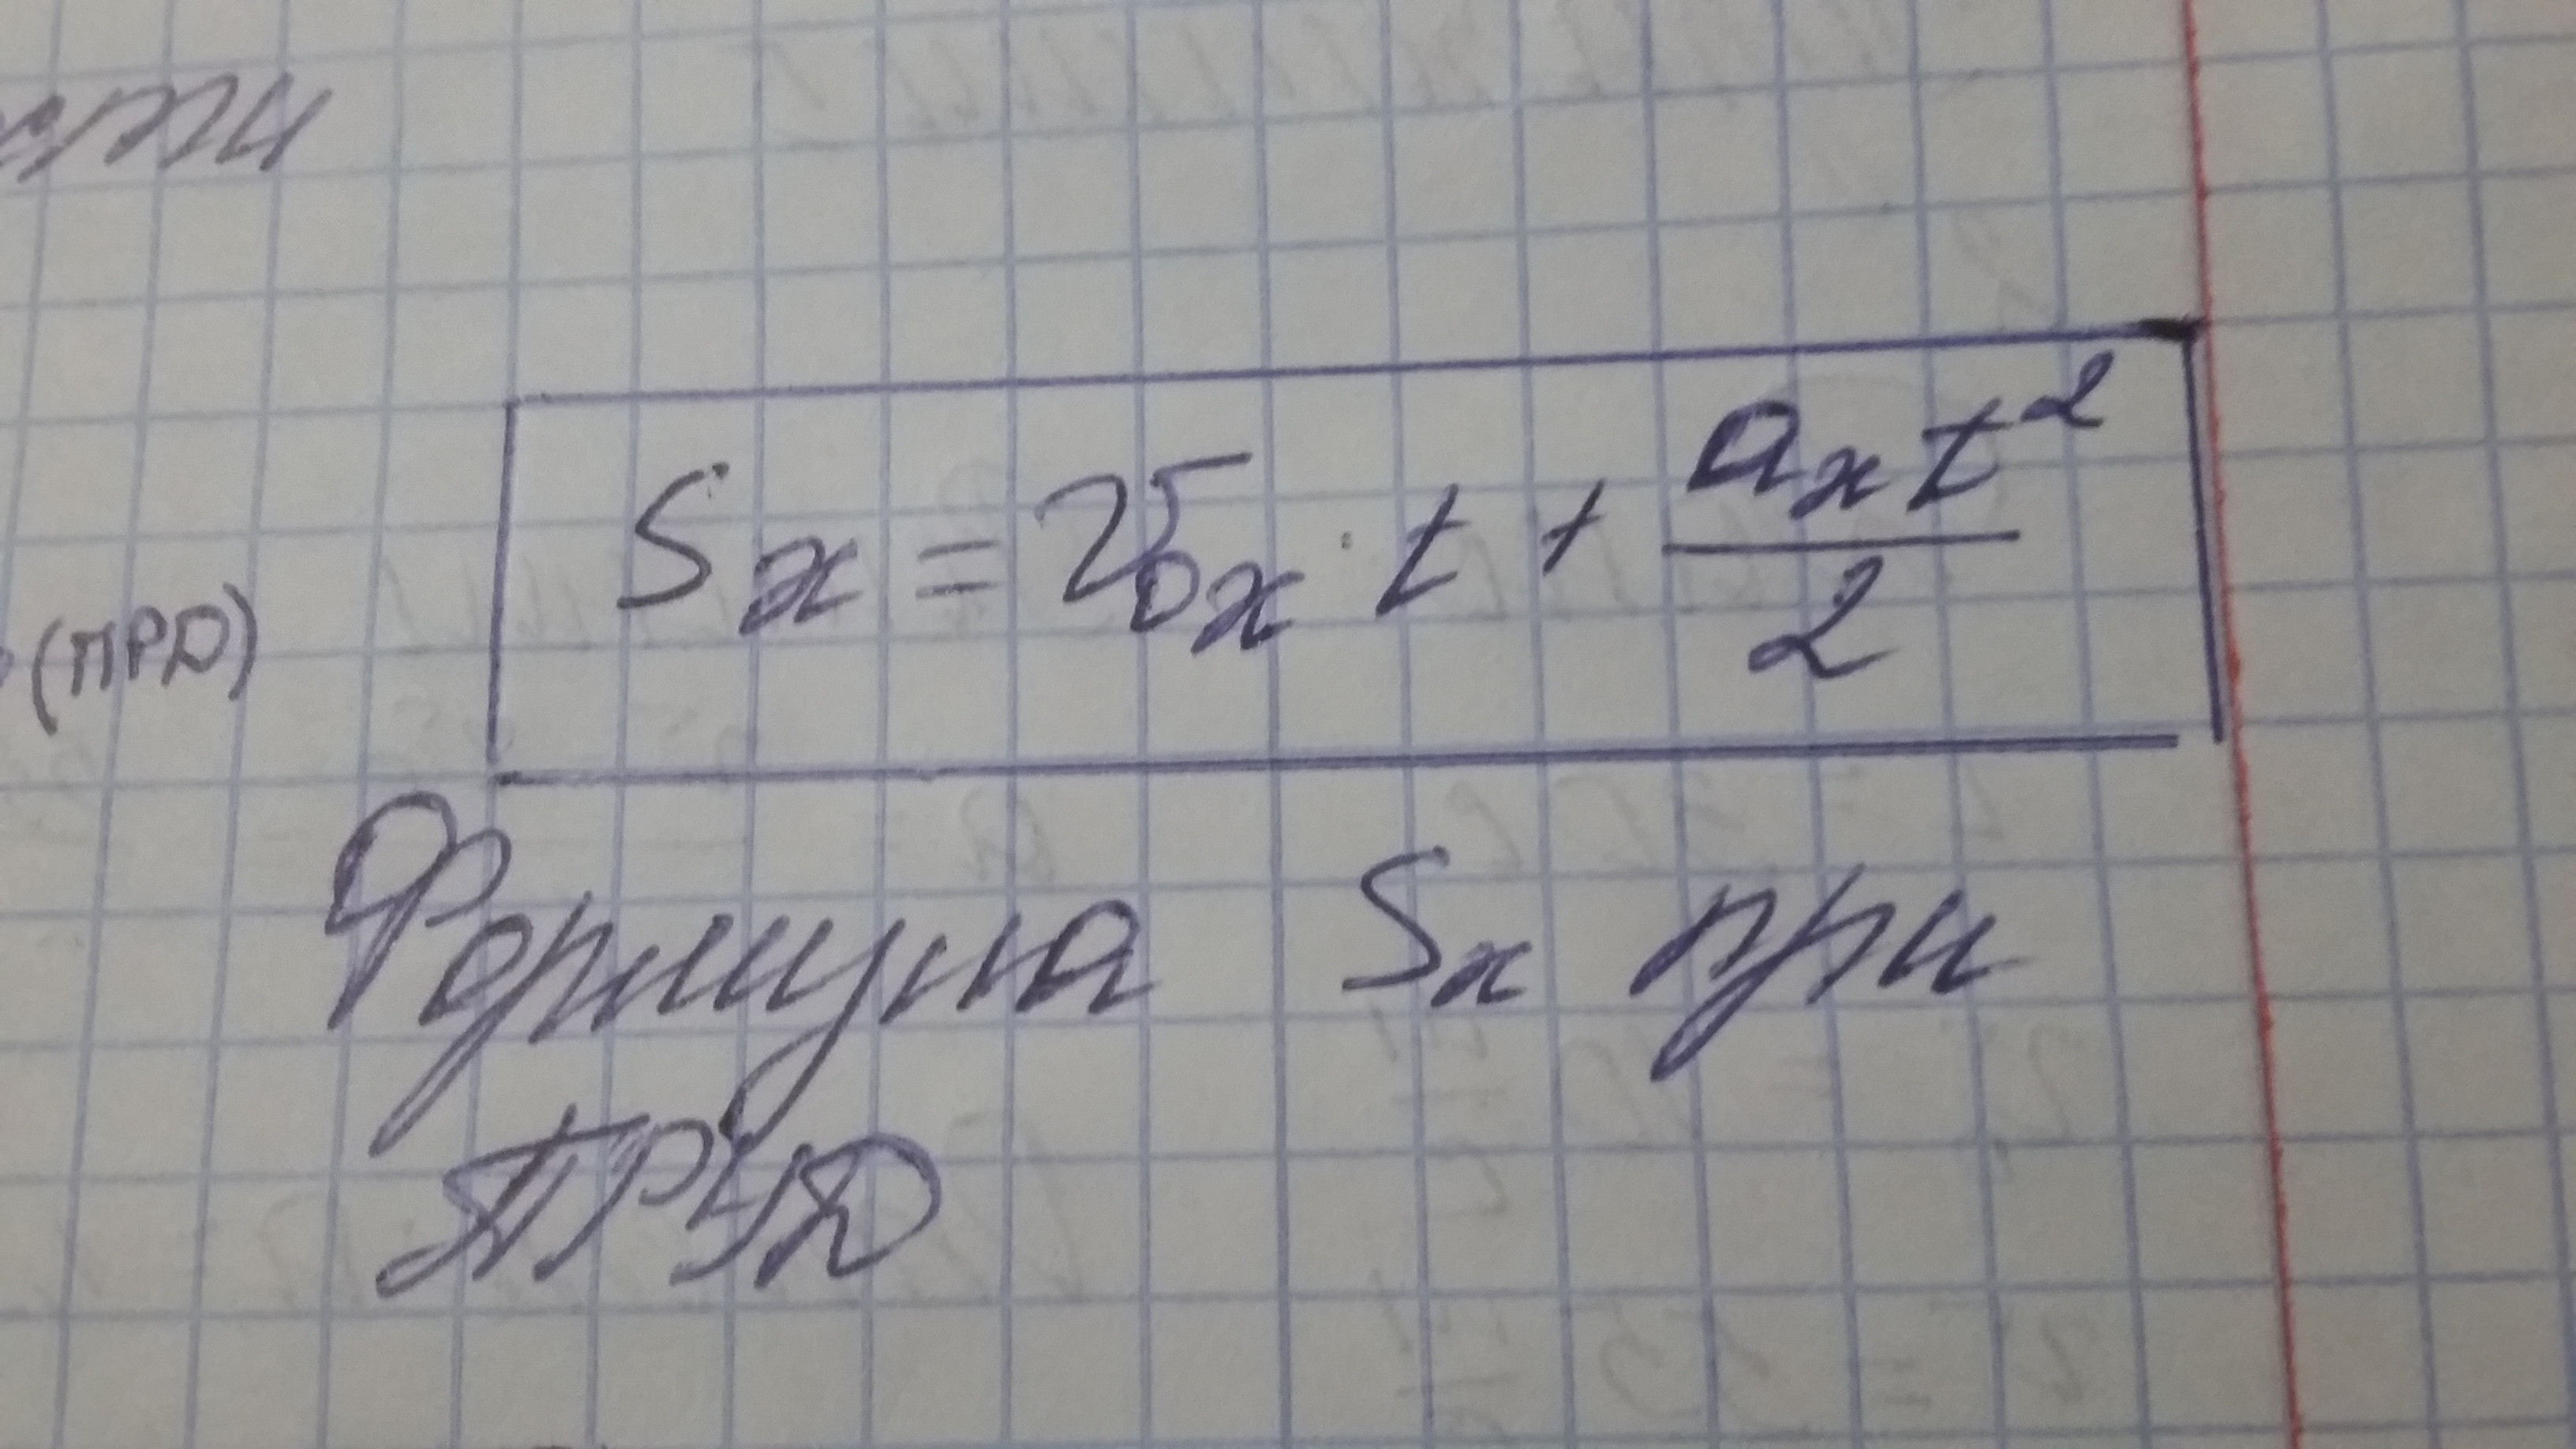 (ПРД)
Sₓ = v₀ₓ · t + aₓt²/2
Формула Sₓ при
ПРУД